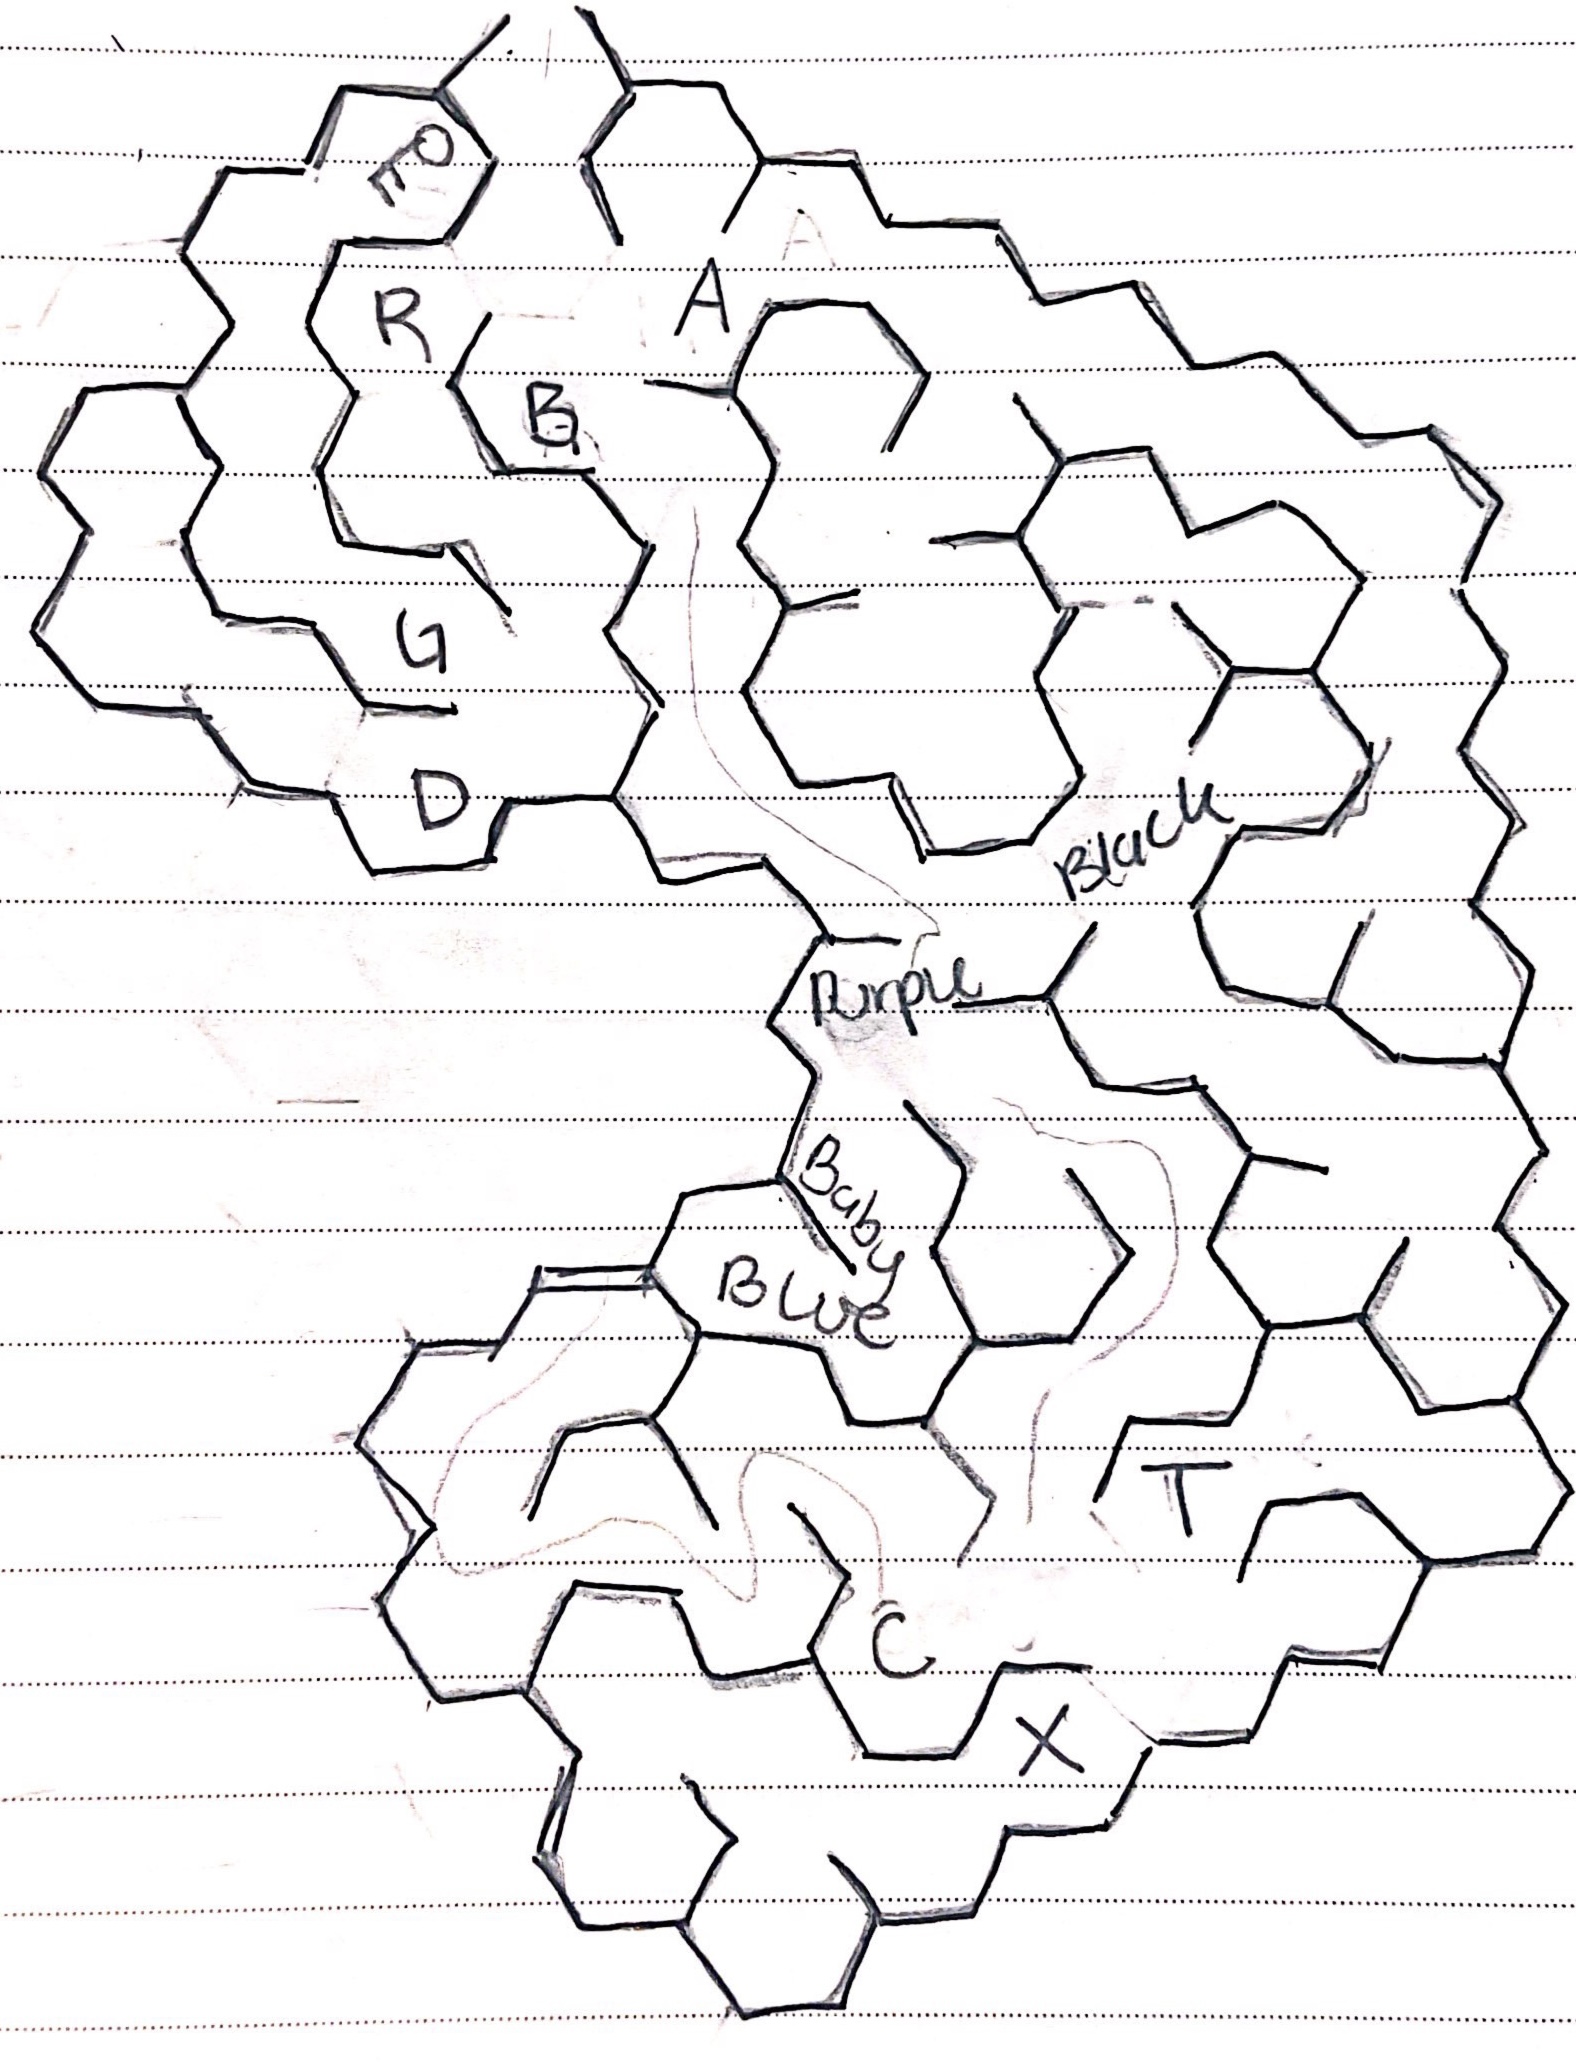 RO
A
A
R
B
G
D
Black
Purple
Baby
Blue
T
C
X